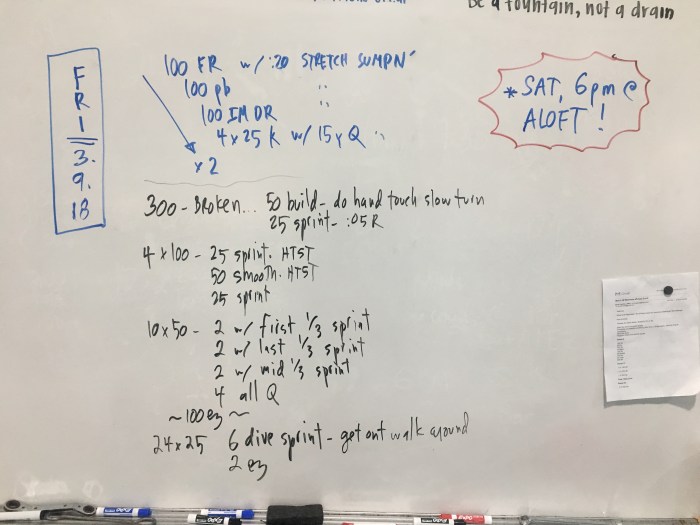 Be a fountain, not a drain
FRI 3.9.18
100 FR w/ :20 STRETCH SUMPN'
100 pb "
100 IM DR "
4 x 25 K w/ 15y Q "
x 2
* SAT, 6pm @
ALOFT !
300 - BROKEN... 50 build - do hand touch slow turn
25 sprint - :05 R
4 x 100 - 25 sprint. HTST
50 smooth. HTST
25 sprint
10 x 50 - 2 w/ first 1/3 sprint
2 w/ last 1/3 sprint
2 w/ mid 1/3 sprint
4 all Q
~ 100 ez ~
24 x 25 6 dive sprint - get out walk around
2 ez
EXPO